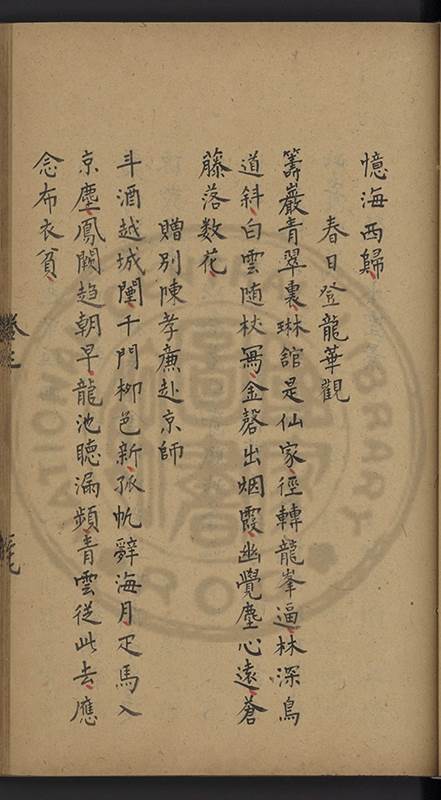 憶海西歸
春日登龍華觀
籌巖青翠裏琳館是仙家徑轉龍峯逼林深鳥
道斜白雲随杖寫金磬出烟霞幽覺塵心遠蒼
藤落数花
贈別陳孝廉赴京師
斗酒越城闉千門栁色新孤帆辭海月疋馬入
京塵鳳闕趋朝早龍池聴漏頻青雲從此去應
念布衣貧